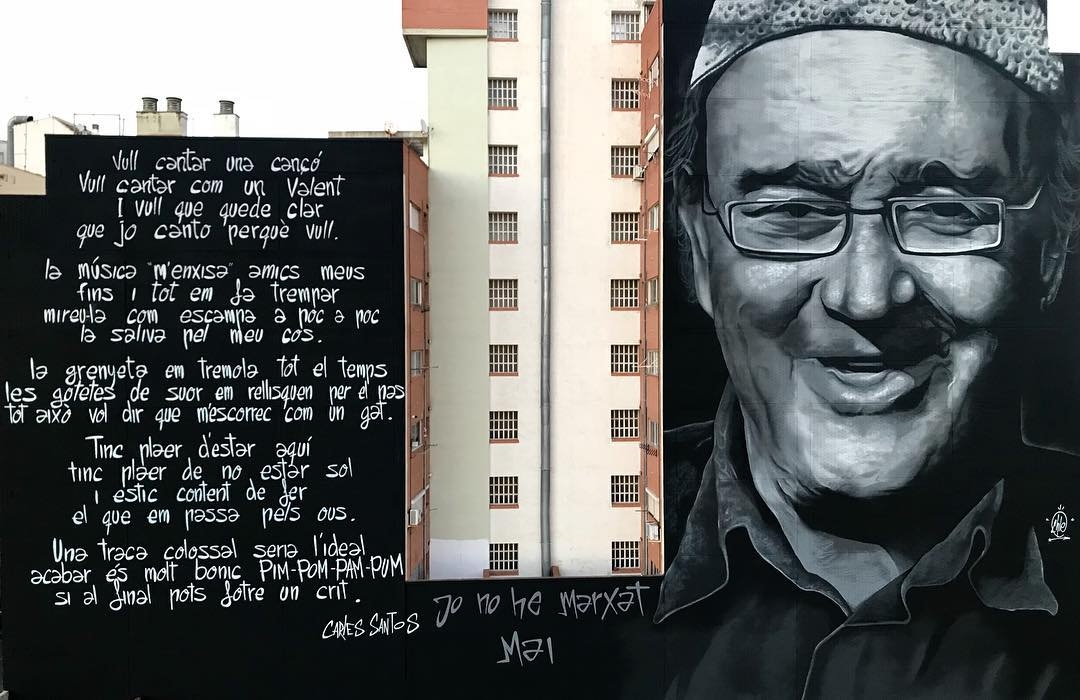 Vull cantar una cançó
Vull cantar com un Valent
I vull que quede clar
que jo canto perquè vull.
la música "m'enxisa" amics meus
fins i tot em fa trempar
mireu-la com escampa a poc a poc
la saliva pel meu cos.
la grenyeta em tremola tot el temps
les gotetes de suor em rellisquen per el nas
tot això vol dir que m'escorrec com un gat.
Tinc plaer d'estar aquí
tinc plaer de no estar sol
i estic content de fer
el que em passa pels ous.
Una traca colossal seria l'ideal
acabar és molt bonic PIM-POM-PAM-PUM
si al final pots fotre un crit.
CARLES SANTOS
Jo no he marxat
Mai